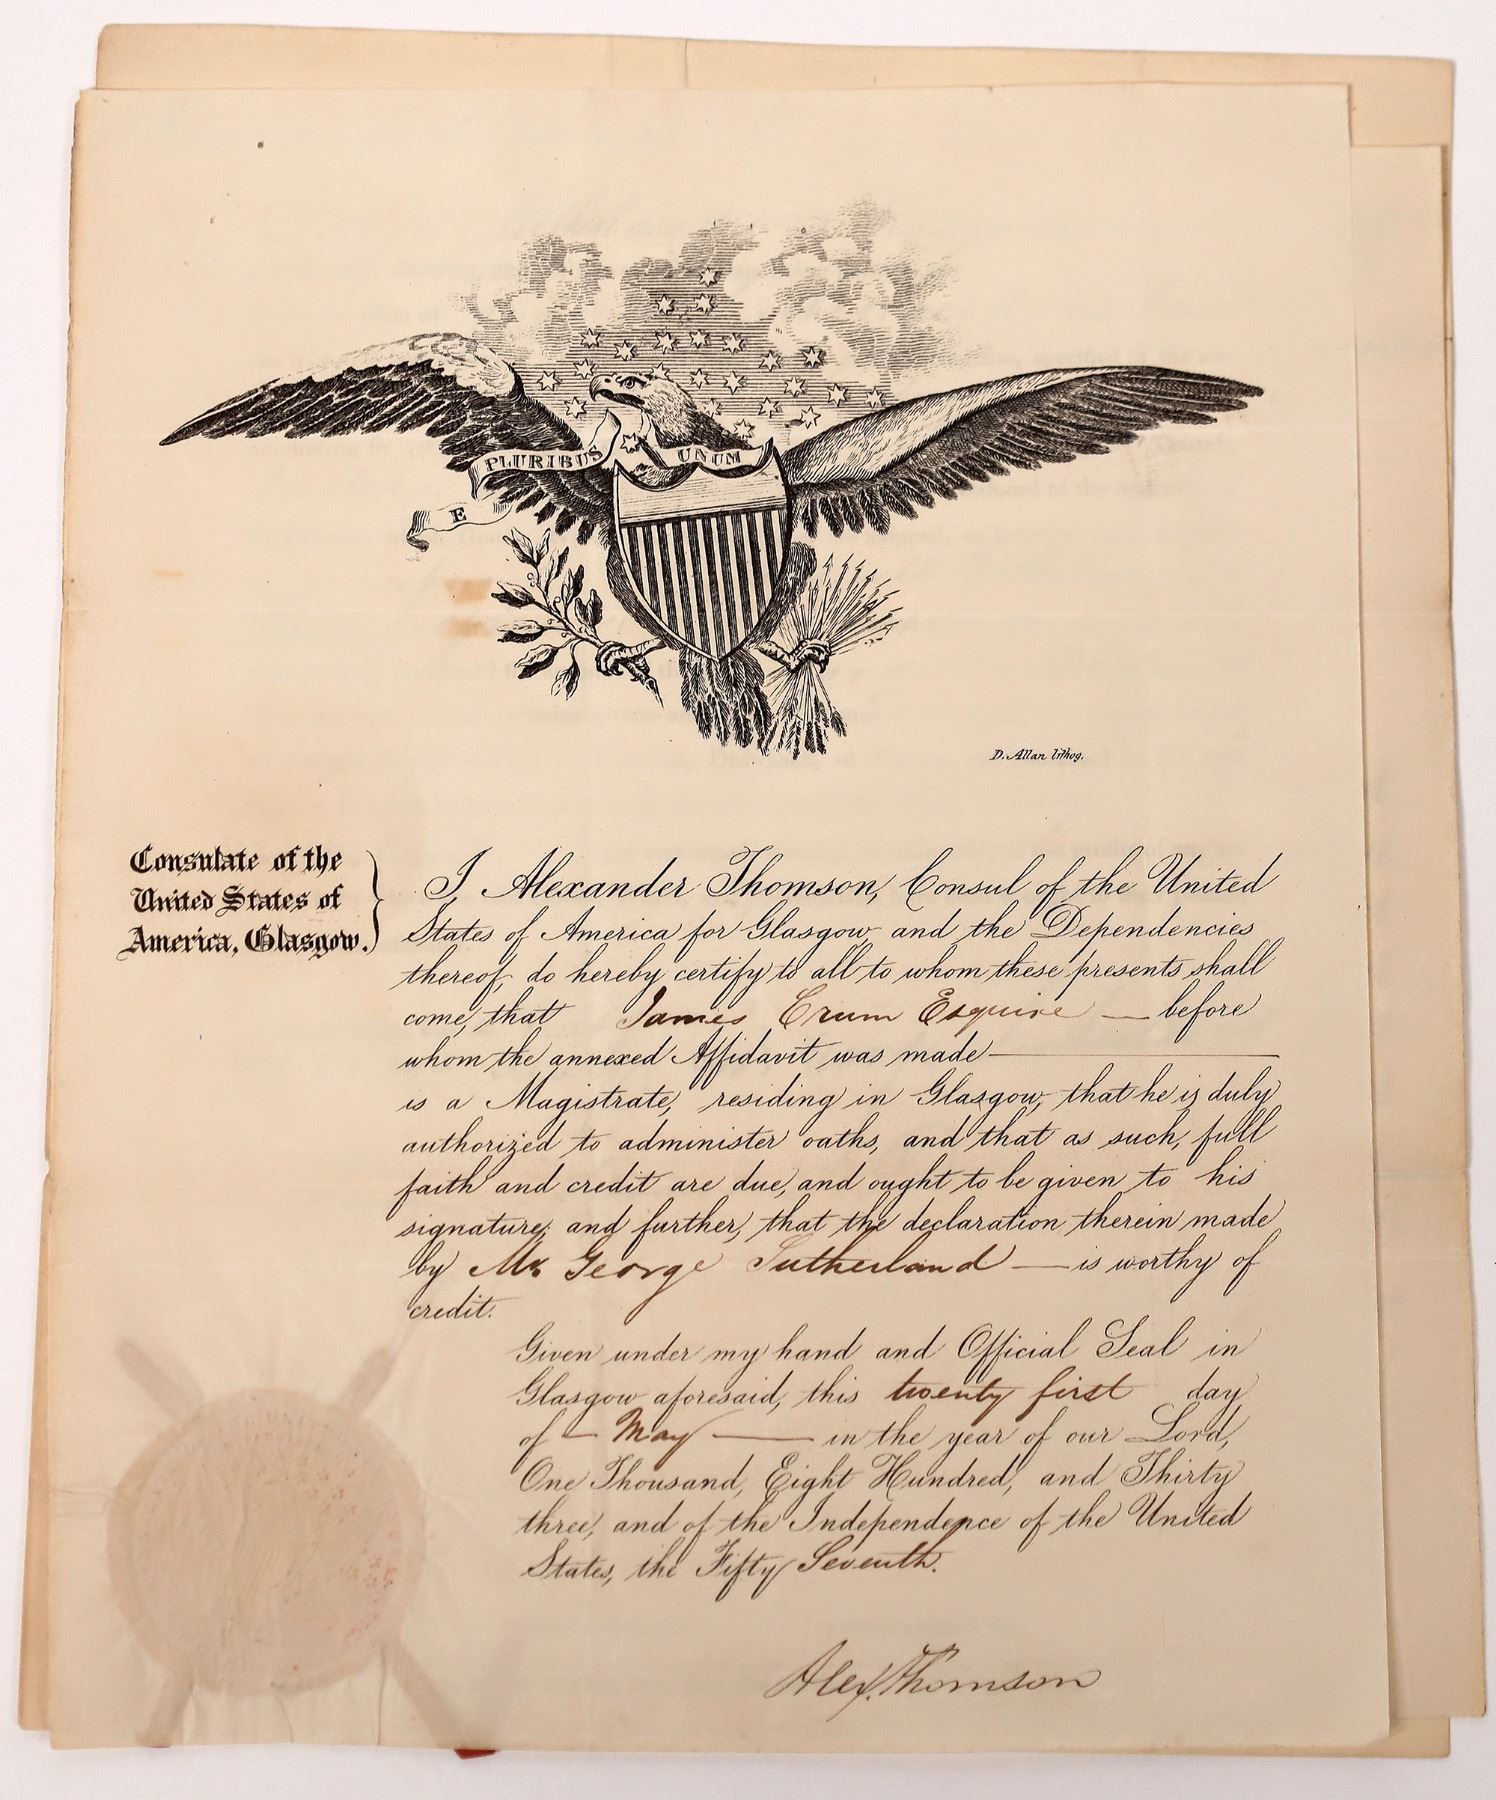 E PLURIBUS UNUM
D. Allan lithog.
Consulate of the
United States of
America, Glasgow.
I, Alexander Thomson, Consul of the United
States of America for Glasgow, and the Dependencies
thereof, do hereby certify to all to whom these presents shall
come, that James Crum Esquire — before
whom the annexed Affidavit was made —
is a Magistrate, residing in Glasgow, that he is duly
authorized to administer oaths, and that as such, full
faith and credit are due, and ought to be given to his
signature; and further, that the declaration therein made
by Mr George Sutherland — is worthy of
credit.
Given under my hand and Official Seal in
Glasgow aforesaid, this twenty first day
of — May — in the year of our Lord,
One Thousand, Eight Hundred, and Thirty
three, and of the Independence of the United
States, the Fifty Seventh.
Alex. Thomson